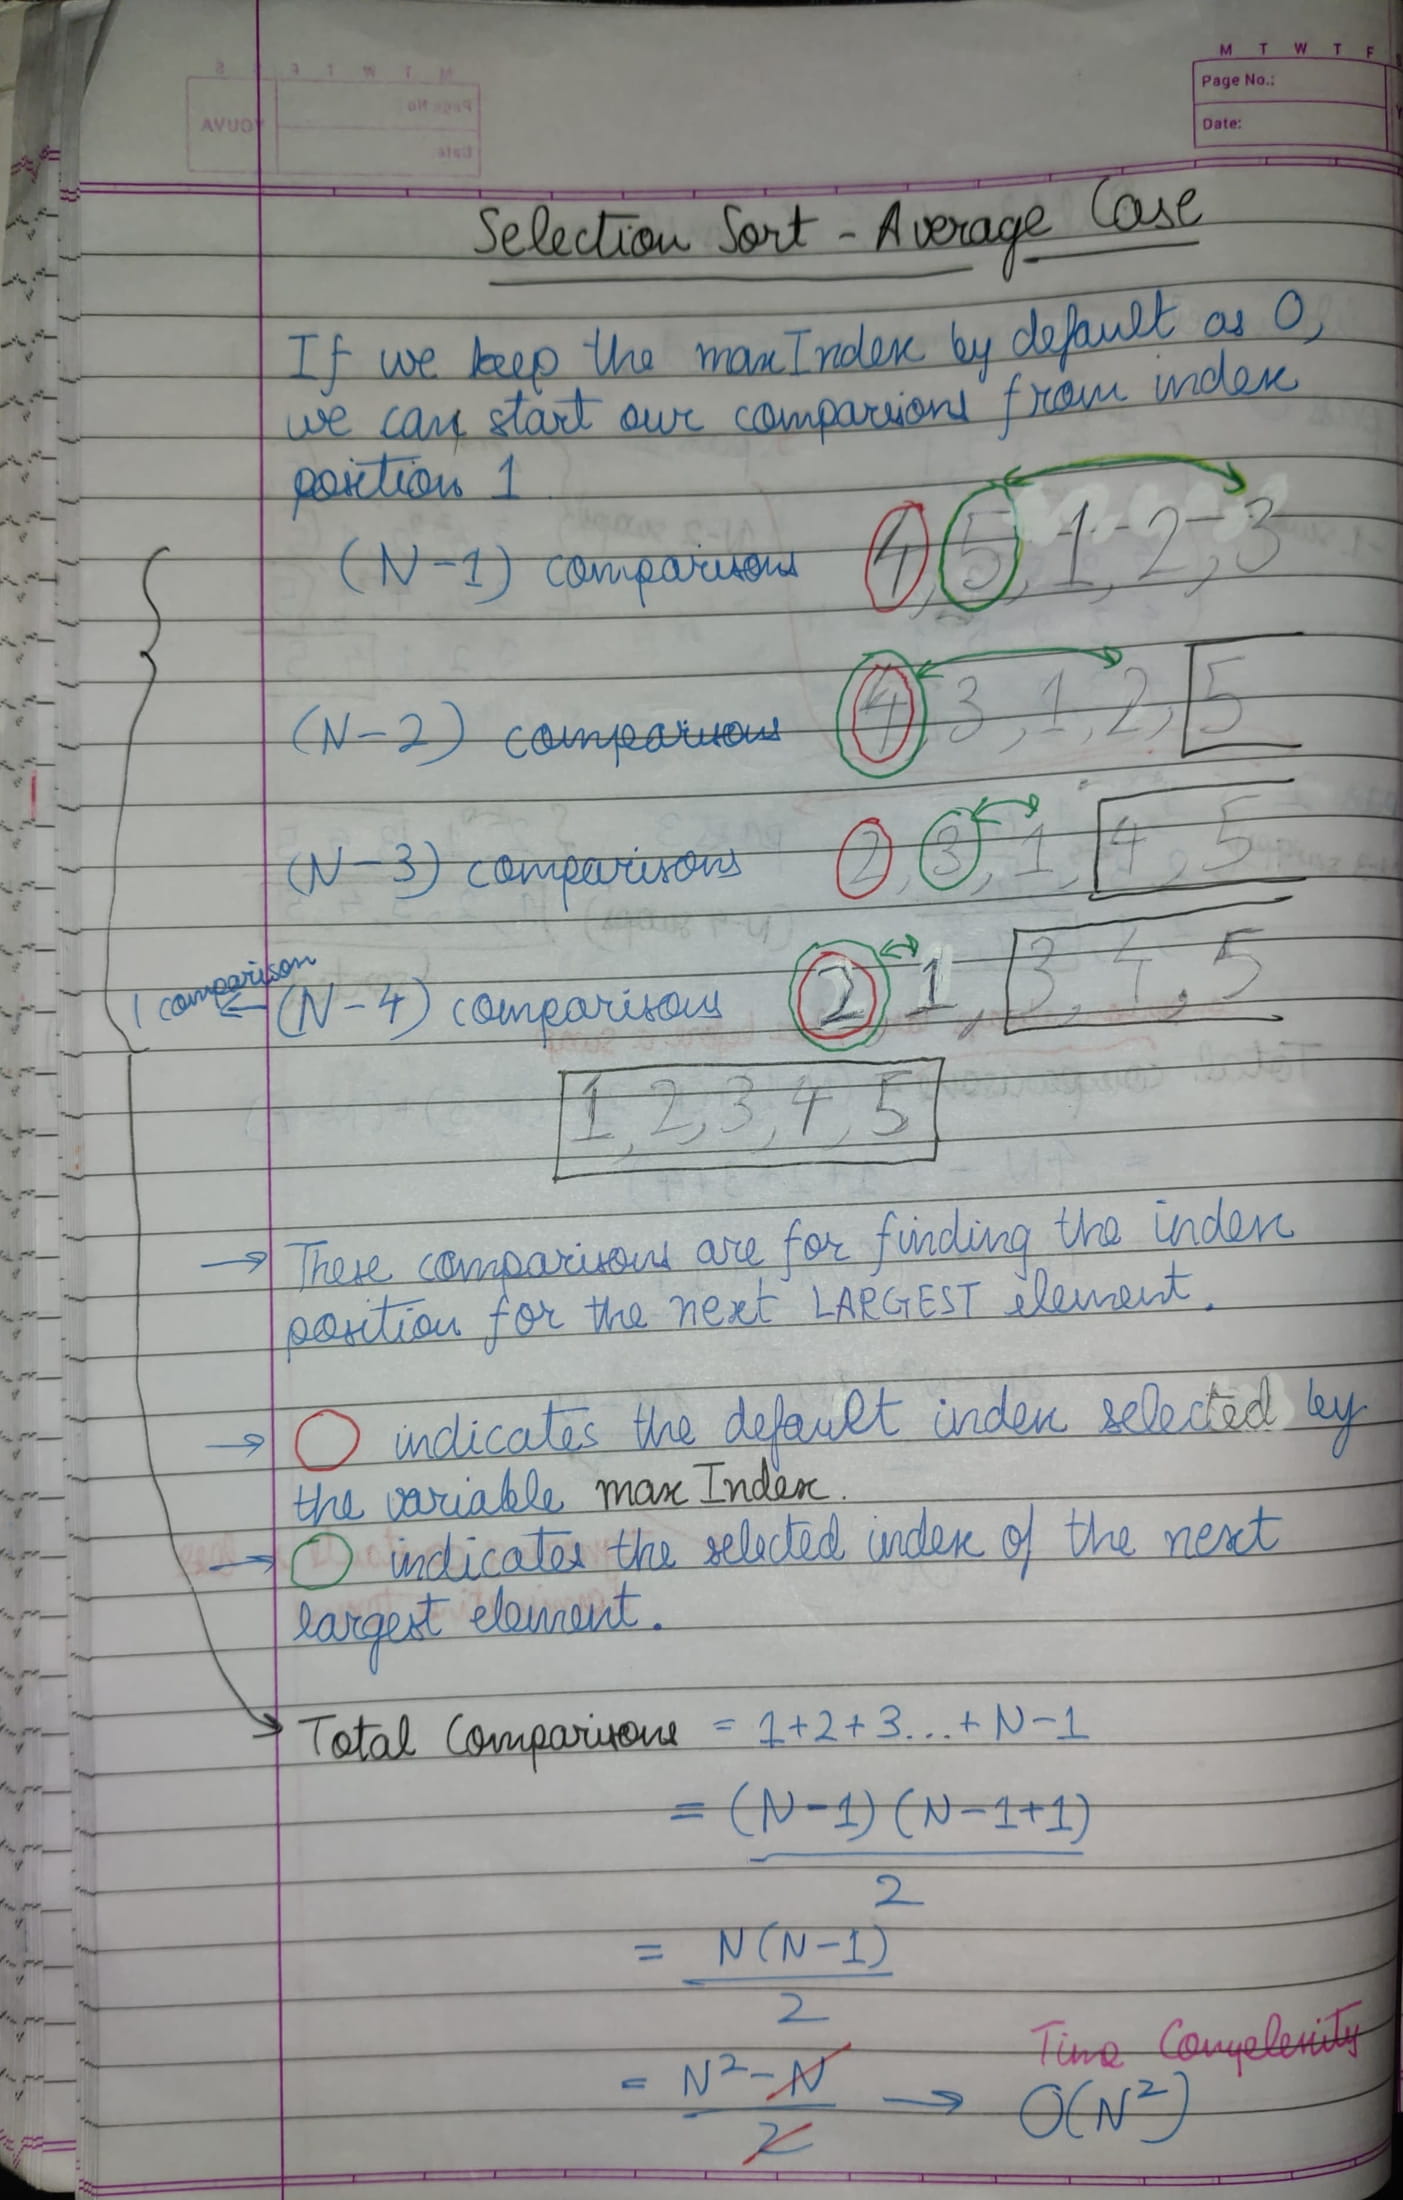 M T W T F
Page No.:
Date:
YOUVA
Selection Sort - Average Case
If we keep the maxIndex by default as 0,
we can start our comparsions from index
position 1
(N-1) comparisons 4, 5, 1, 2, 3
(N-2) comparisons 4, 3, 1, 2, 5
(N-3) comparisons 2, 3, 1, 4, 5
1 comparison ← (N-4) comparisons 2, 1, 3, 4, 5
1, 2, 3, 4, 5
→ These comparisons are for finding the index
position for the next LARGEST element.
→ indicates the default index selected by
the variable maxIndex.
→ indicates the selected index of the next
largest element.
Total Comparisons = 1+2+3...+ N-1
= (N-1) (N-1+1)
2
= N(N-1)
2
Time Complexity
= N²-N → O(N²)
2